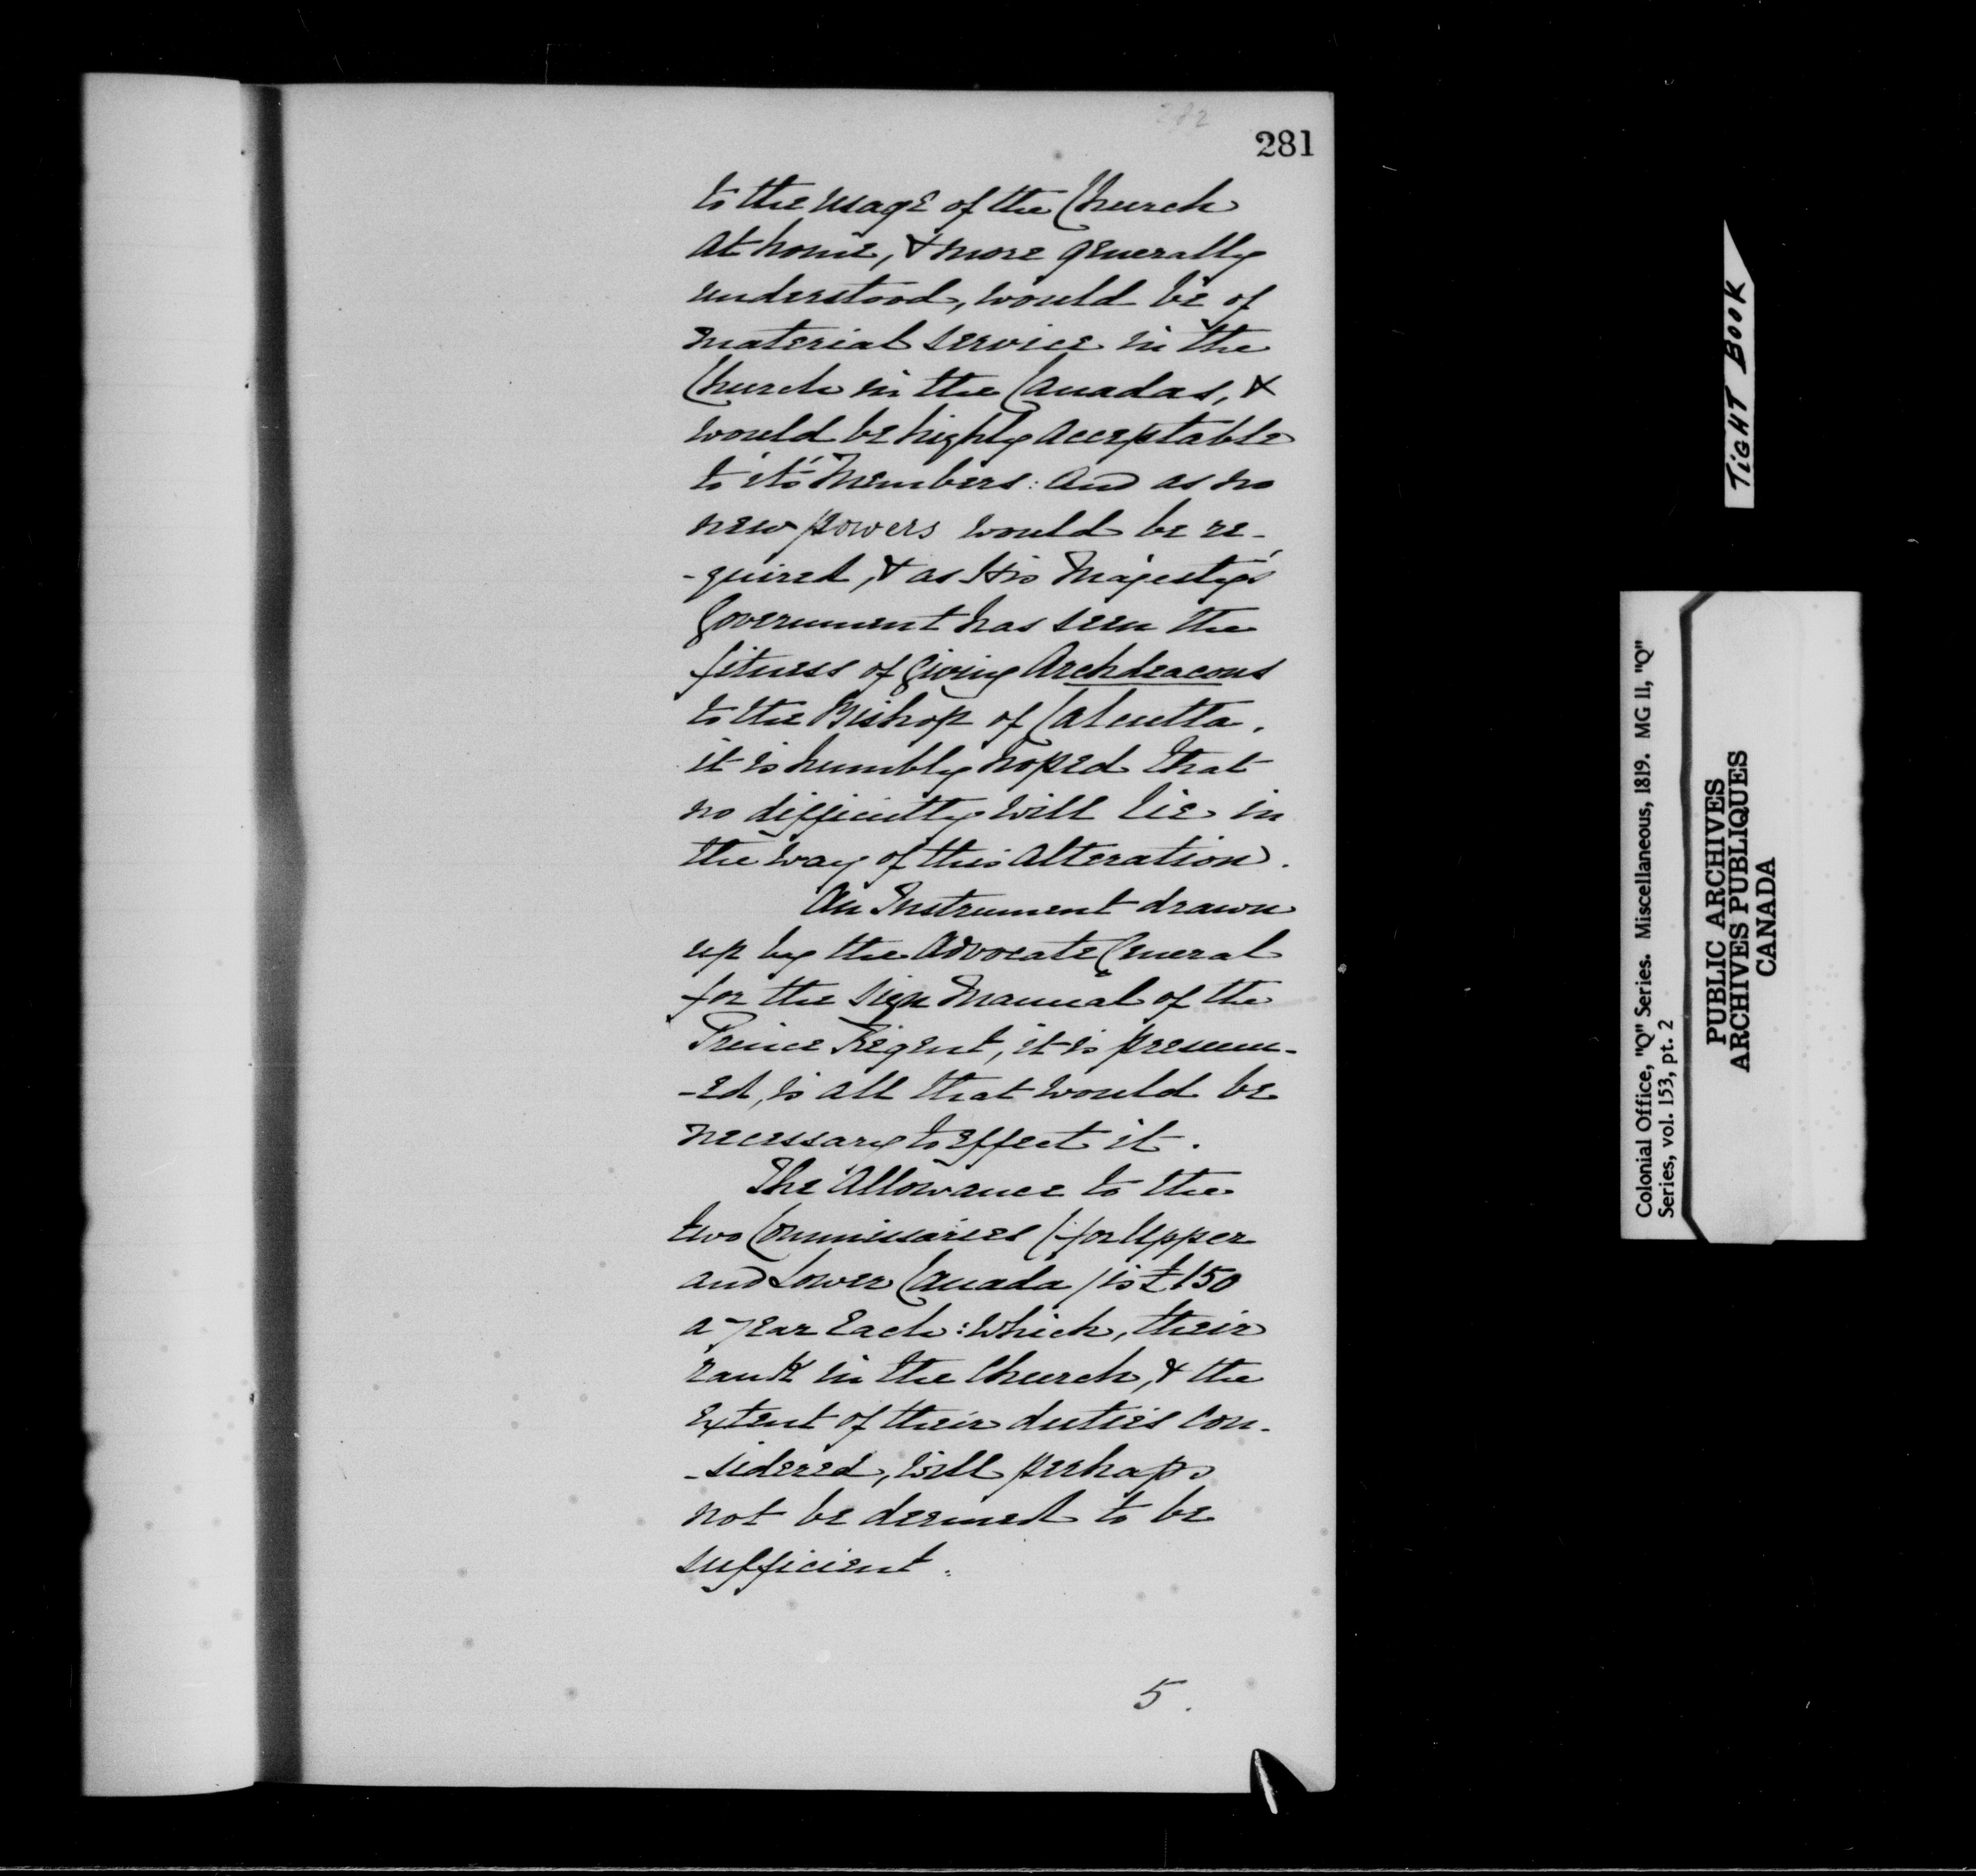 282
281
to the usage of the Church
at home, & more generally
understood, would be of
material service in the
Church in the Canadas, &
would be highly acceptable
to it's Members: and as no
new powers would be re-
-quired, & as His Majesty's
Government has seen the
fitness of giving Archdeacons
to the Bishop of Calcutta,
it is humbly hoped that
no difficulty will lie in
the way of this alteration.
An Instrument drawn
up by the Advocate General
for the sign Manual of the
Prince Regent, it is presum-
-ed, is all that would be
necessary to effect it.
The Allowance to the
two Commissaries (for Upper
and Lower Canada) is £150
a year each: which, their
rank in the Church, & the
extent of their duties con-
-sidered, will perhaps
not be deemed to be
sufficient.
5.
TIGHT BOOK
Colonial Office, "Q" Series. Miscellaneous, 1819. MG 11, "Q"
Series, vol. 153, pt. 2
PUBLIC ARCHIVES
ARCHIVES PUBLIQUES
CANADA